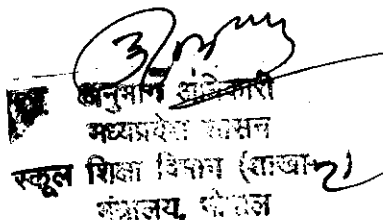 अनुभाग अधिकारी
मध्यप्रदेश शासन
स्कूल शिक्षा विभाग (शाखा-2)
मंत्रालय, भोपाल